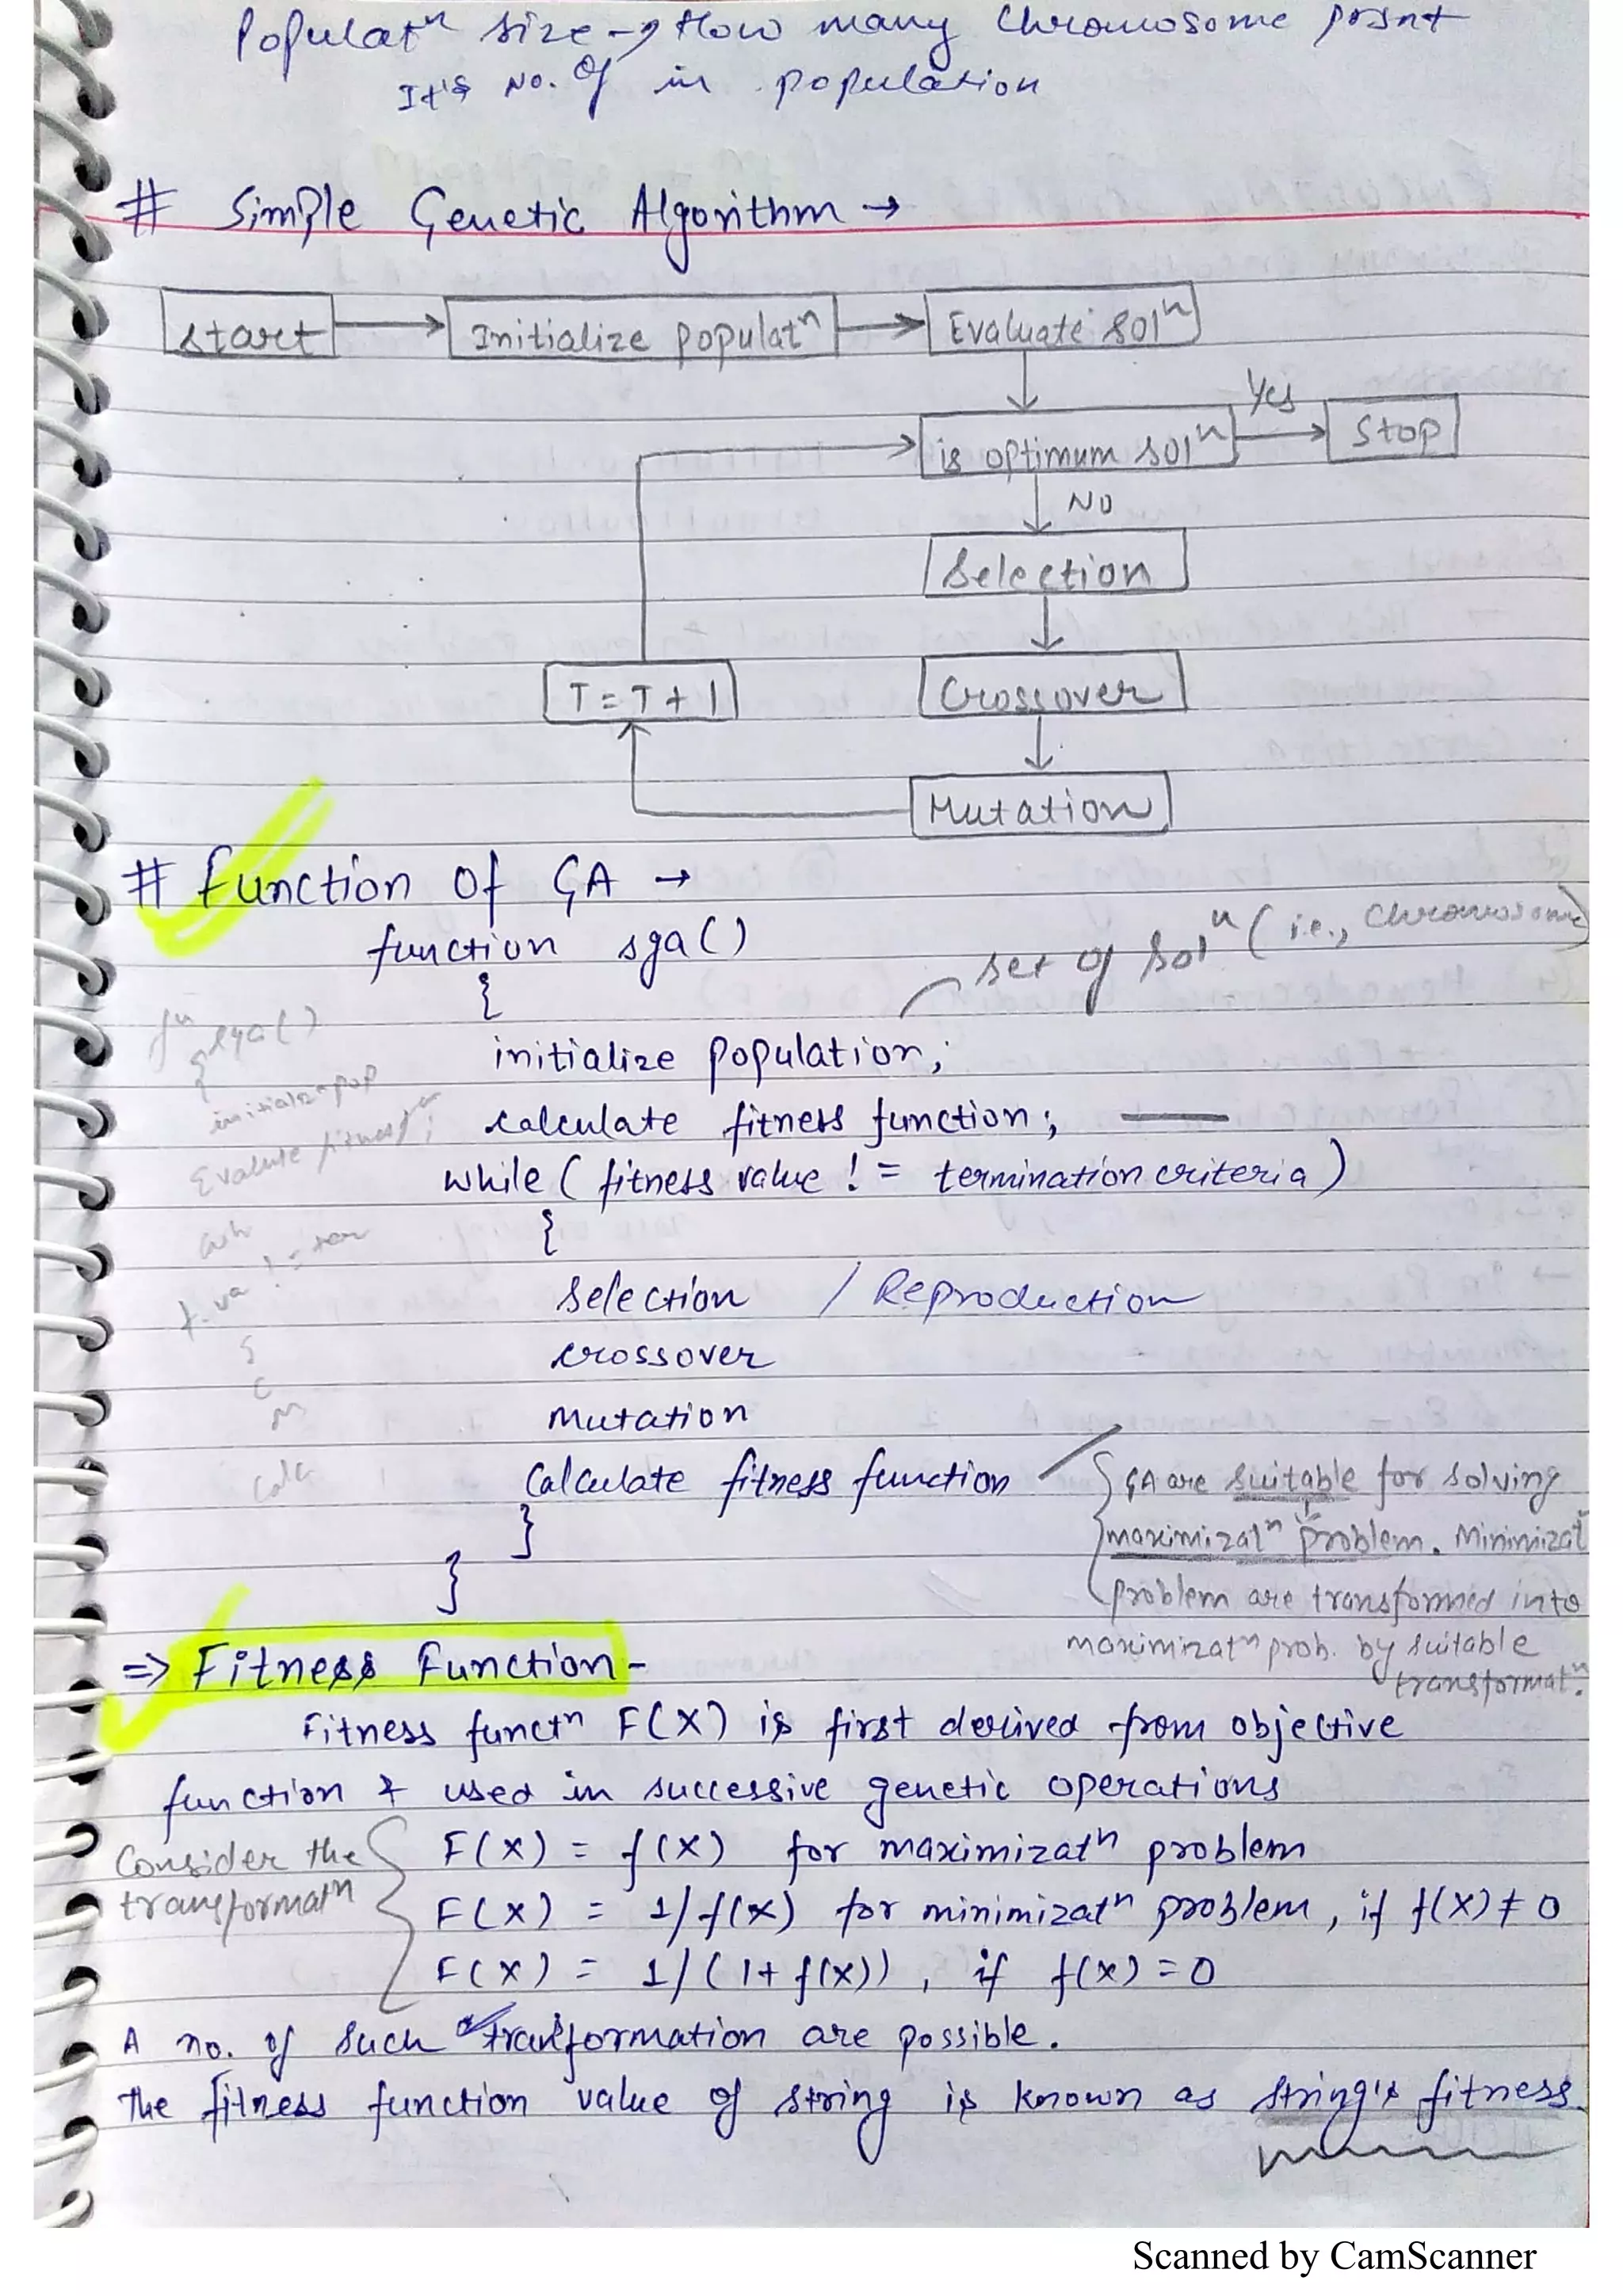 Populatⁿ size → How many chromosome prsnt
It's No. of in population
# Simple Genetic Algorithm →
start
Initialize populatⁿ
Evaluate solⁿ
Yes
is optimum solⁿ
Stop
NO
Selection
T = T + 1
Crossover
Mutation
# Function of GA →
function sga()
set of solⁿ (i.e., chromosome)
{
fⁿ sga()
{
initialize population;
initialzⁿ pop
calculate fitness function;
Evalute fitness fⁿ;
while ( fitness value != termination criteria )
{
f. va != ter
selection / Reproduction
S
crossover
C
Mutation
M
Calculate fitness function
Calc
{ GA are suitable for solving
maximizatⁿ problem. Minimizatⁿ
problem are transformed into
maximizatⁿ prob. by suitable
transformatⁿ.
}
}
⇒ Fitness Function -
Fitness functⁿ F(X) is first derived from objective
function & used in successive genetic operations
Consider the
transformatⁿ
F(X) = f(X) for maximizatⁿ problem
F(X) = 1/f(x) for minimizatⁿ problem, if f(X) ≠ 0
F(X) = 1/(1+f(X)), if f(X) = 0
A no. of such transformation are possible.
The fitness function value of string is known as string's fitness.
Scanned by CamScanner